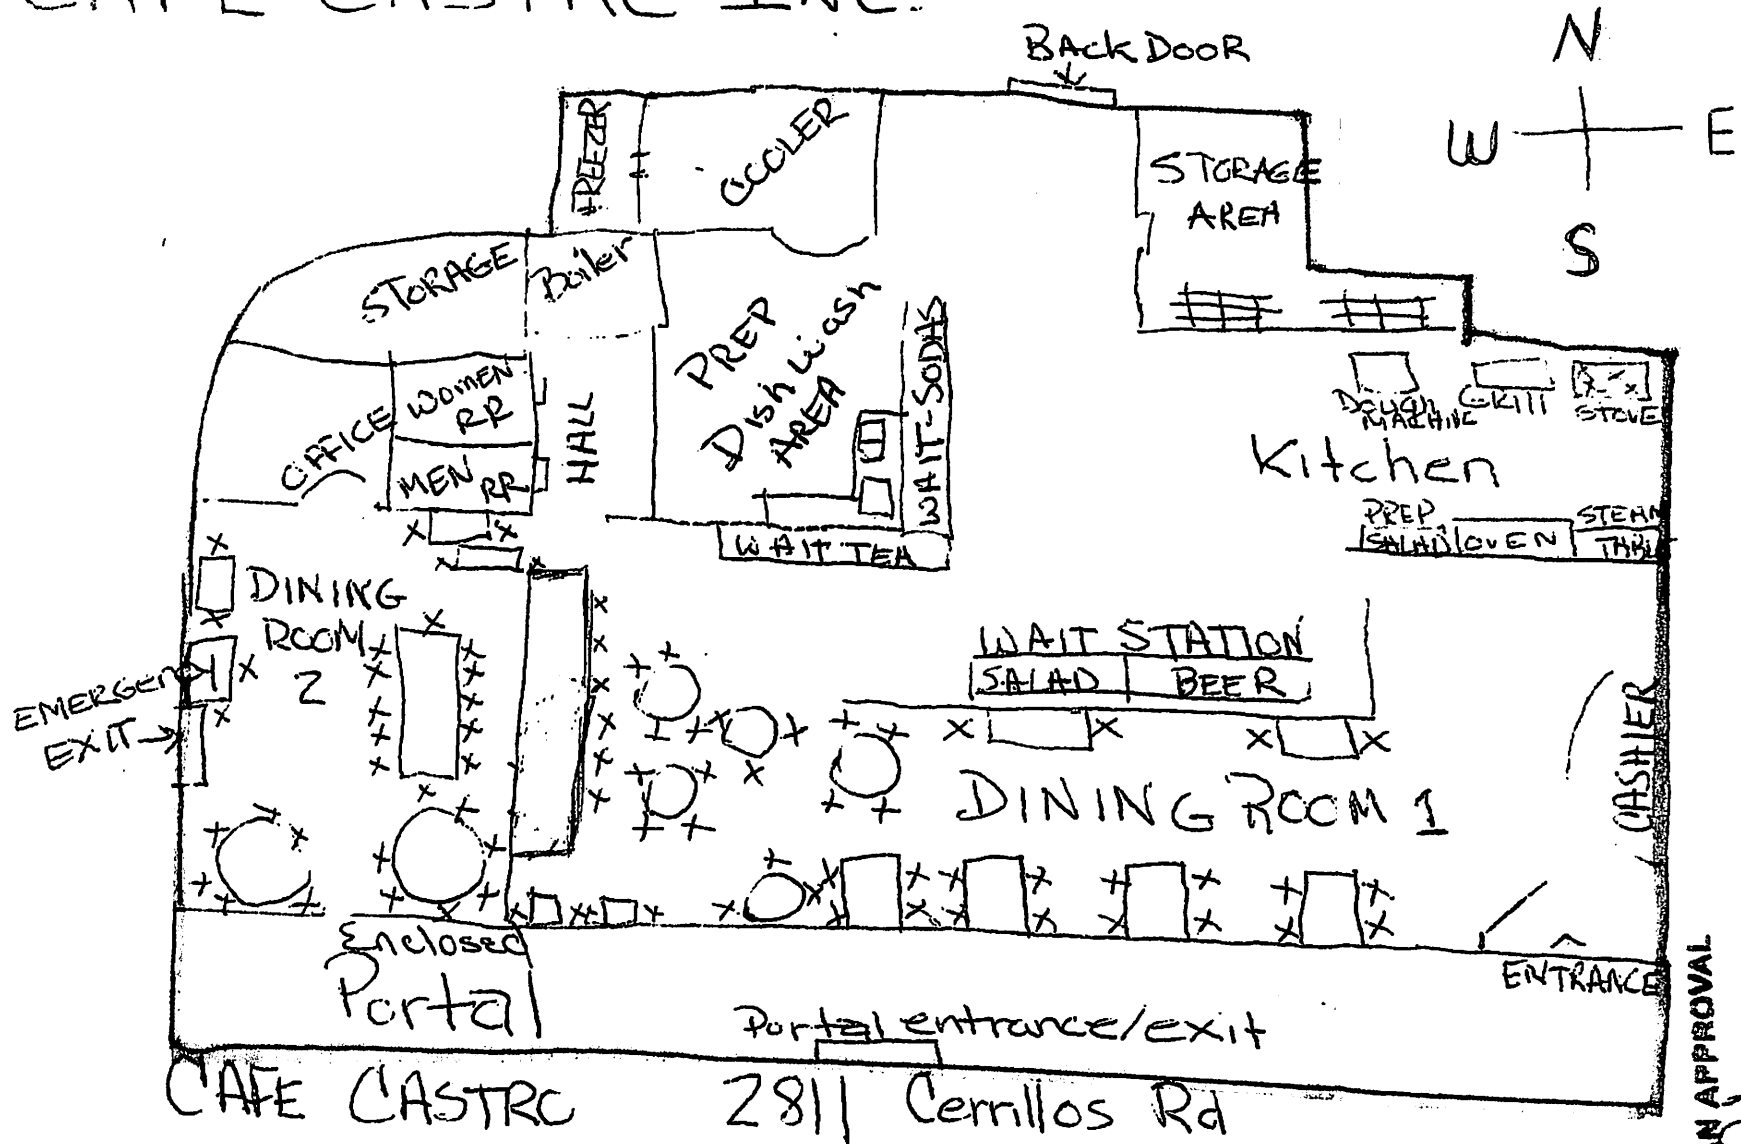 CAFE CASTRO INC.
BACK DOOR
N
W E
S
FREEZER
COOLER
STORAGE
AREA
STORAGE
Boiler
PREP
Dish Wash
AREA
WAIT-SODAS
WOMEN
RR
HALL
OFFICE
MEN RR
DOUGH
MACHINE
GRILL
STOVE
Kitchen
PREP
SALAD
OVEN
STEAM
TABLE
WAIT TEA
DINING
ROOM
2
WAIT STATION
SALAD
BEER
EMERGENCY
EXIT
CASHIER
DINING ROOM 1
Enclosed
Portal
ENTRANCE
Portal entrance/exit
CAFE CASTRO 2811 Cerrillos Rd
N APPROVAL